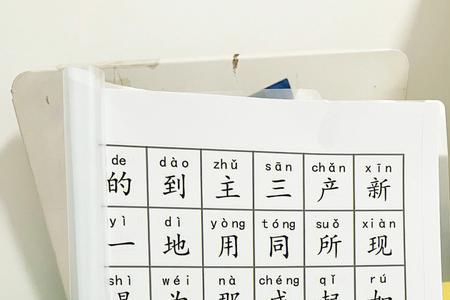 de dào zhǔ sān chǎn xīn
的 到 主 三 产 新
yì dì yòng tóng suǒ xiàn
一 地 用 同 所 现
shì wéi nà chéng qǐ rú
是 为 那 成 起 如